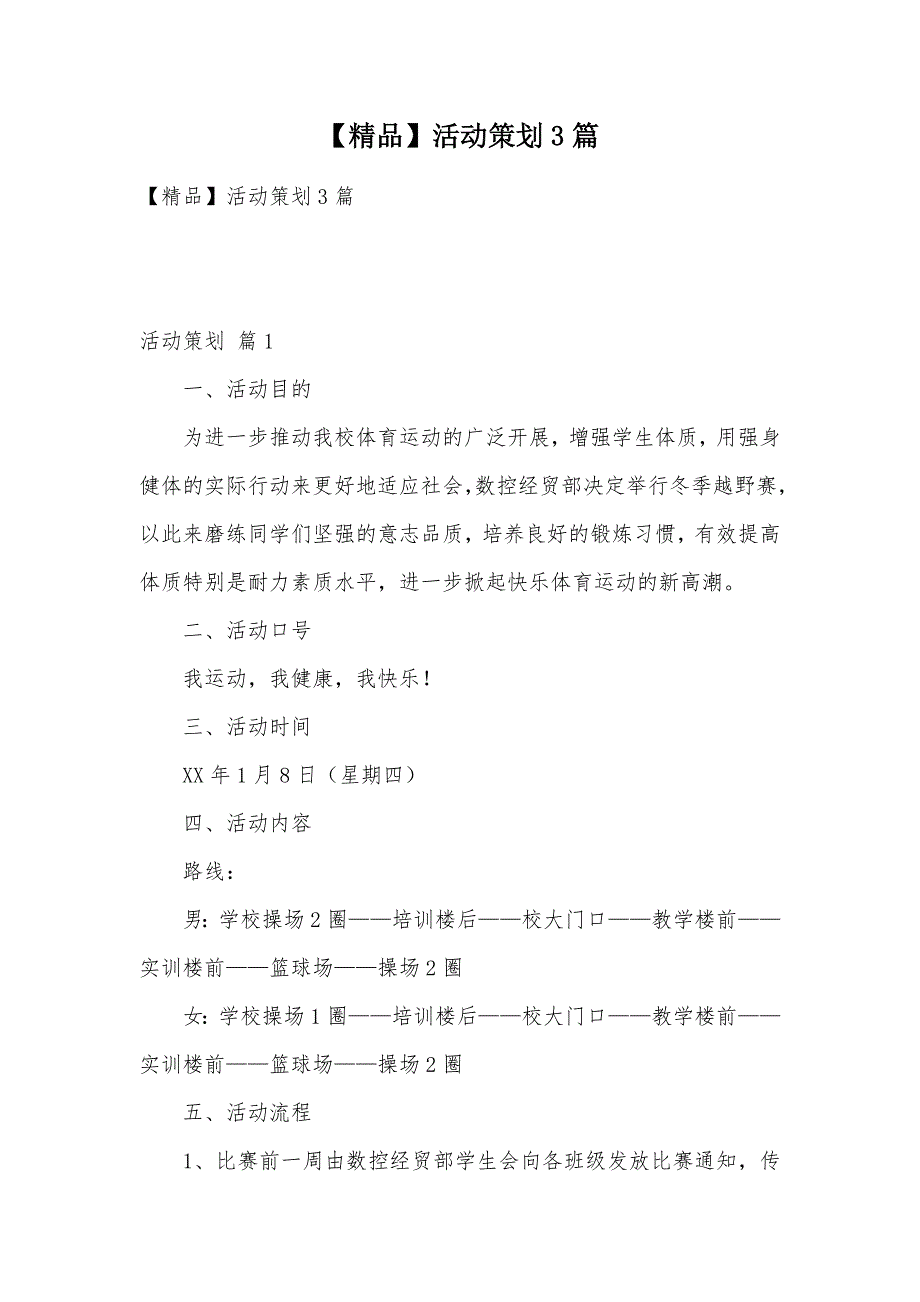 【精品】活动策划3篇
【精品】活动策划3篇
活动策划 篇1
一、活动目的
为进一步推动我校体育运动的广泛开展，增强学生体质，用强身
健体的实际行动来更好地适应社会，数控经贸部决定举行冬季越野赛，
以此来磨练同学们坚强的意志品质，培养良好的锻炼习惯，有效提高
体质特别是耐力素质水平，进一步掀起快乐体育运动的新高潮。
二、活动口号
我运动，我健康，我快乐！
三、活动时间
XX年1月8日（星期四）
四、活动内容
路线：
男：学校操场2圈——培训楼后——校大门口——教学楼前——
实训楼前——篮球场——操场2圈
女：学校操场1圈——培训楼后——校大门口——教学楼前——
实训楼前——篮球场——操场2圈
五、活动流程
1、比赛前一周由数控经贸部学生会向各班级发放比赛通知，传